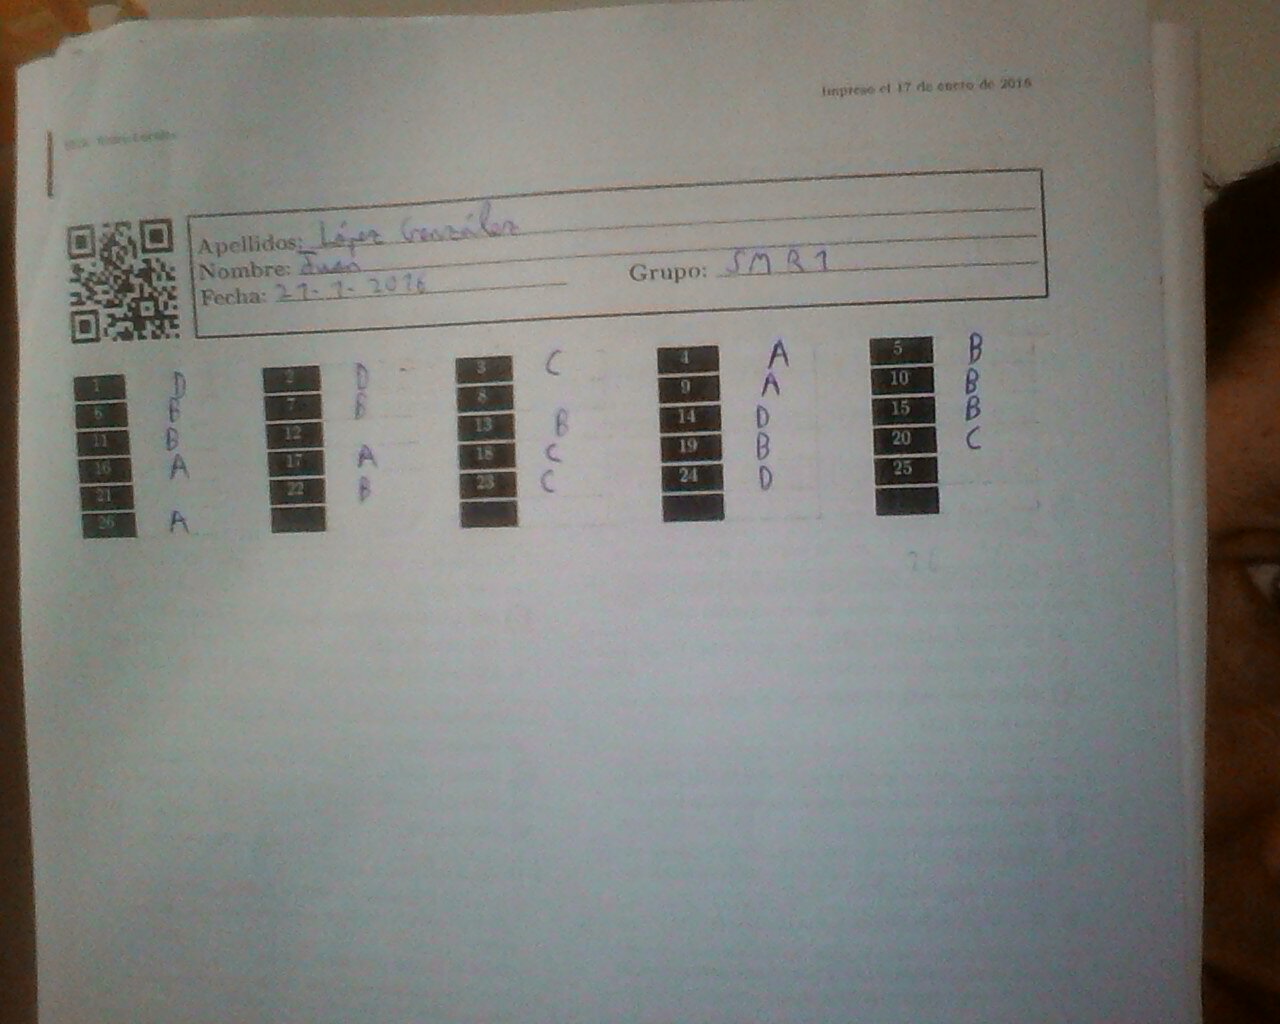 Impreso el 17 de enero de 2016
Apellidos: López González
Nombre: Juan
Fecha: 21-1-2016 Grupo: SMR1
1 D 2 D 3 C 4 A 5 B
6 B 7 B 8 9 A 10 B
11 B 12 13 B 14 D 15 B
16 A 17 A 18 C 19 B 20 C
21 22 B 23 C 24 D 25
26 A